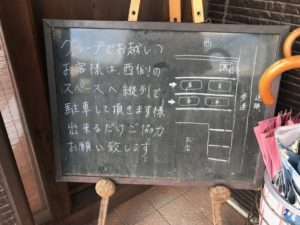 グループでお越しの
お客様は、西側の
スペースへ縦列で
駐車して頂きます様
出来るだけご協力
お願い致します
西
歩道
お店